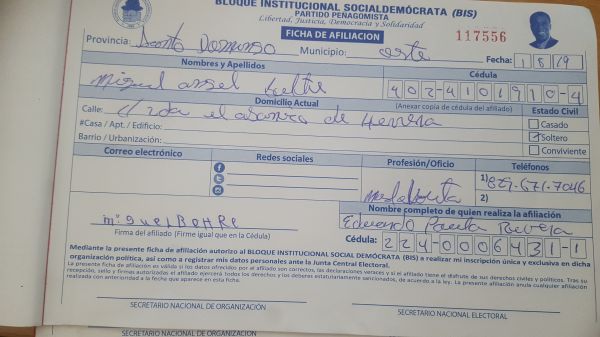 BLOQUE INSTITUCIONAL SOCIALDEMÓCRATA (BIS)
PARTIDO PEÑAGOMISTA
Libertad, Justicia, Democracia y Solidaridad
FICHA DE AFILIACION
117556
Provincia: Santo Domingo Municipio: oeste Fecha: 1 8 19
Nombres y Apellidos Cédula
Miguel angel 402-4101910-4
Domicilio Actual (Anexar copia de cédula del afiliado) Estado Civil
Calle: el de Herrera
Casado
#Casa / Apt. / Edificio: Soltero
Barrio / Urbanización: Conviviente
Correo electrónico Redes sociales Profesión/Oficio Teléfonos
1) 829-571-7046
2)
Nombre completo de quien realiza la afiliación
miguel BeltRe Eduardo Paula Rivera
Firma del afiliado (Firme igual que en la Cédula) Cédula: 224-0006431-1
Mediante la presente ficha de afiliación autorizo al BLOQUE INSTITUCIONAL SOCIAL DEMÓCRATA (BIS) a realizar mi inscripción única y exclusiva en dicha
organización política, así como a registrar mis datos personales ante la Junta Central Electoral.
La presente ficha de afiliación es válida si los datos ofrecidos por el afiliado son correctos, las declaraciones veraces y si el afiliado tiene el disfrute de sus derechos civiles y políticos. Tras su
recepción, sello y firmas autorizadas el afiliado ejercerá todos los derechos y los deberes estatutariamente sancionados, de acuerdo a la ley. La presente afiliación anula cualquier afiliación
realizada con anterioridad a la fecha que aparece en esta ficha.
SECRETARIO NACIONAL DE ORGANIZACIÓN SECRETARIO NACIONAL ELECTORAL
SECRETARIO NACIONAL DE ORGANIZACION